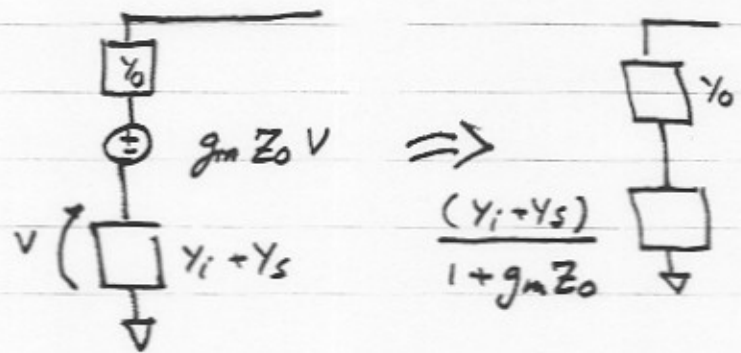 Y₀
±
gₘ Z₀ V
⇒
V
Yᵢ + Yₛ
Y₀
(Yᵢ + Yₛ)
1 + gₘ Z₀